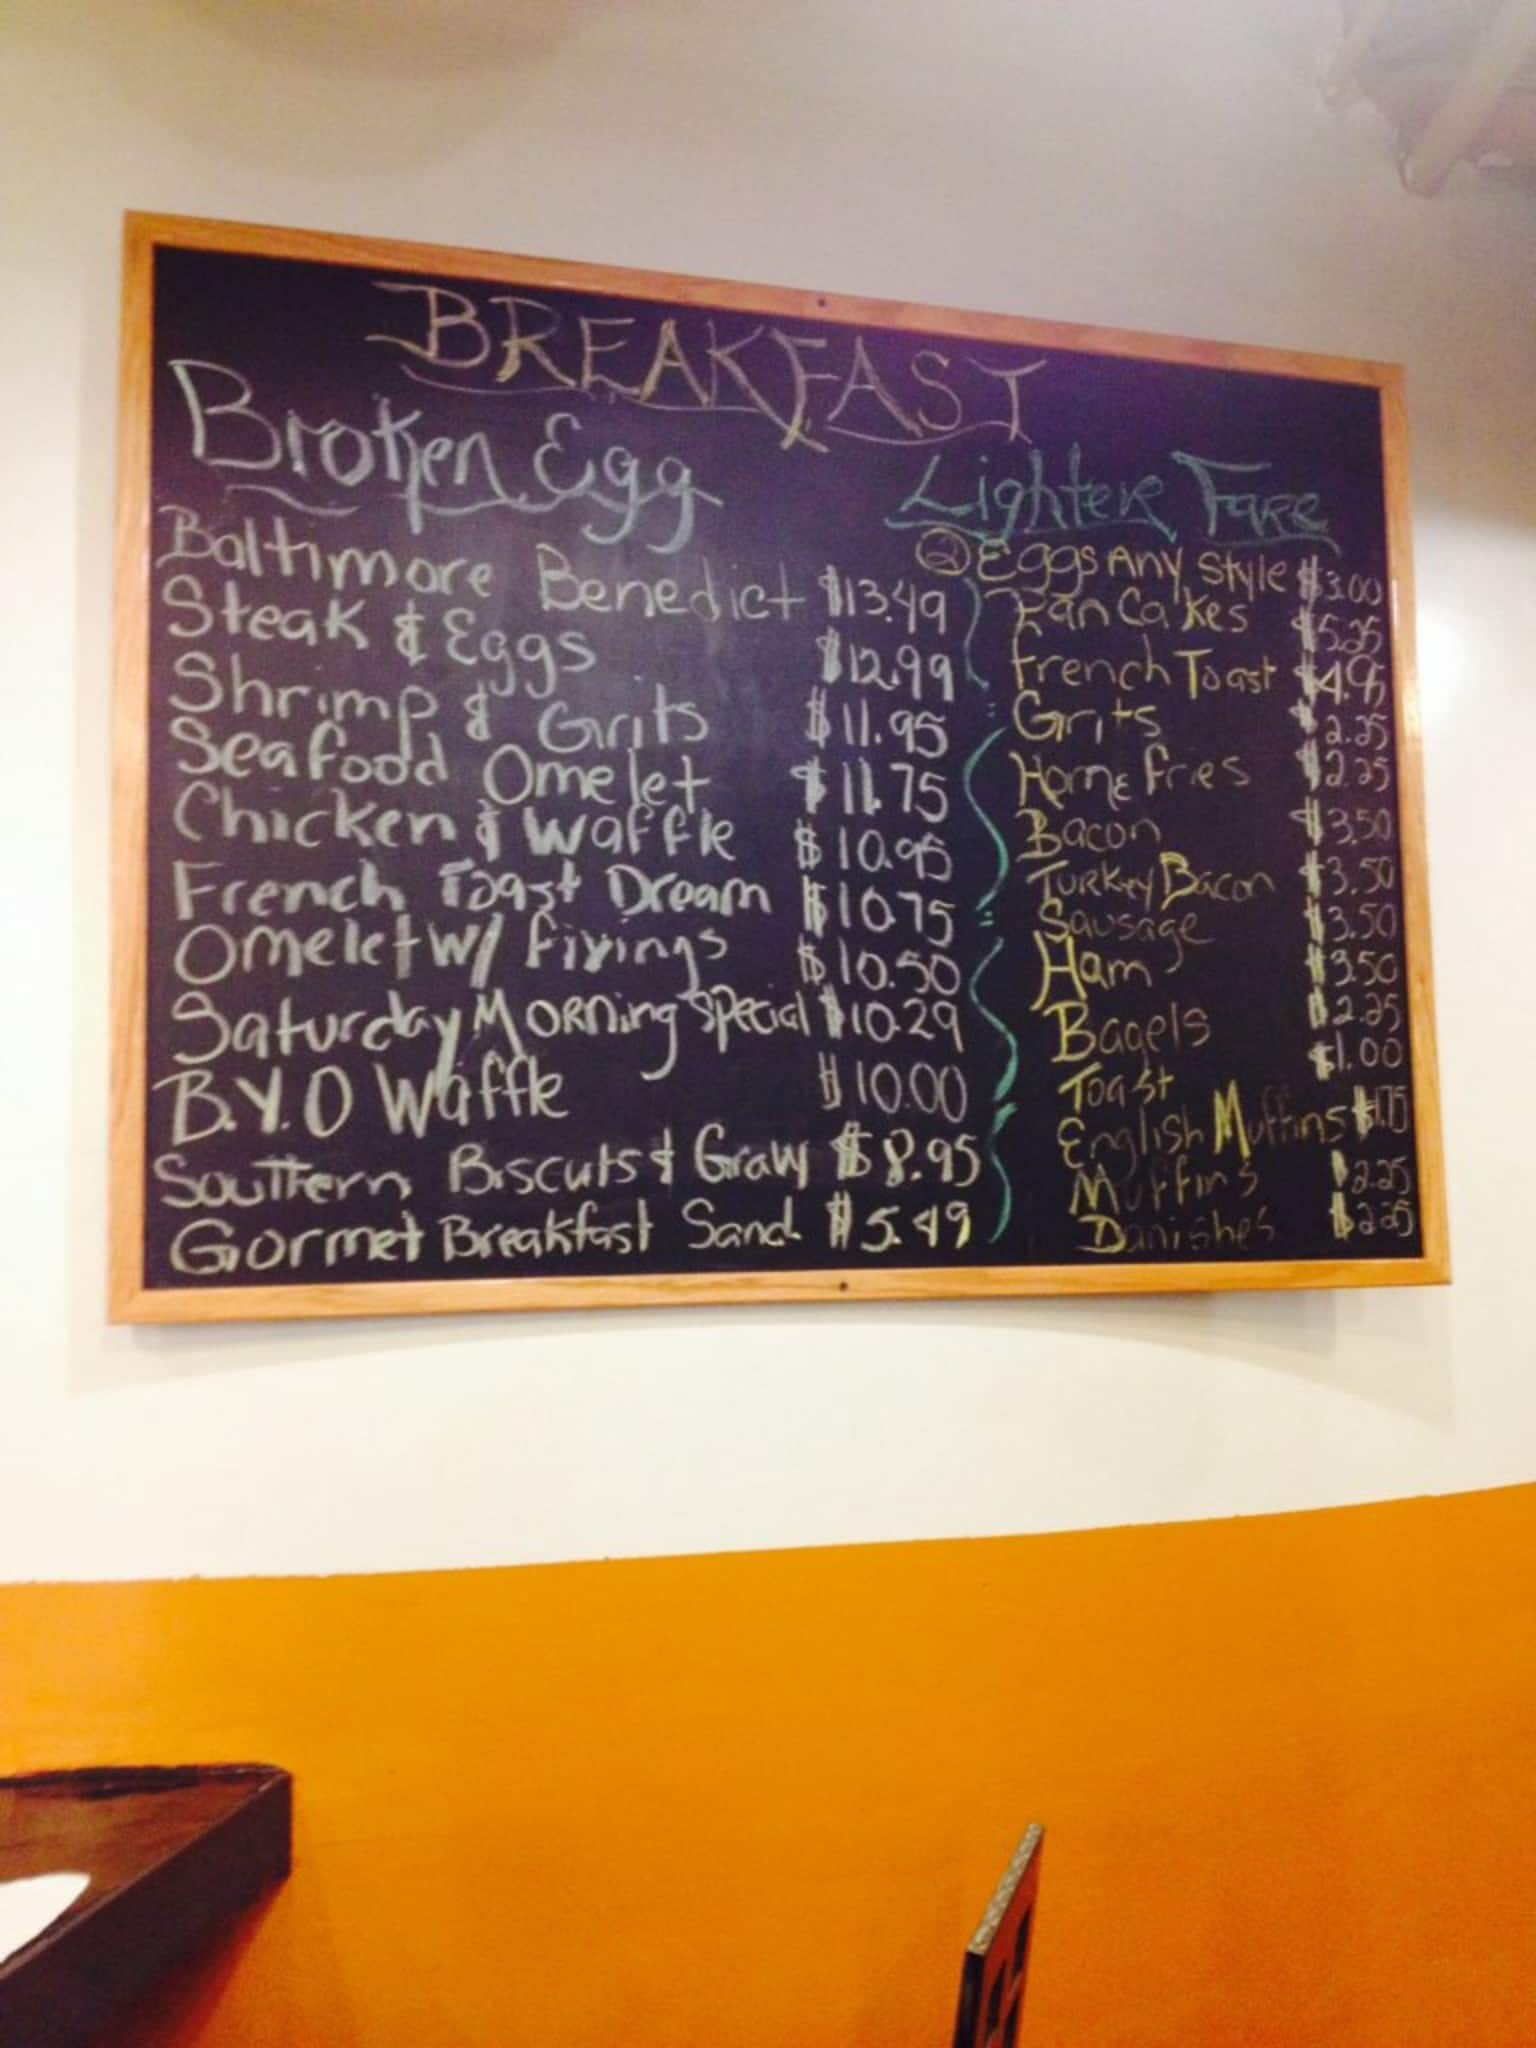 BREAKFAST
Broken Egg
Baltimore Benedict $13.49
Steak & Eggs $12.99
Shrimp & Grits $11.95
Seafood Omelet $11.75
Chicken & Waffle $10.95
French Toast Dream $10.75
Omelet w/ fixings $10.50
Saturday Morning Special $10.29
B.Y.O Waffle $10.00
Southern Biscuts & Gravy $8.95
Gormet Breakfast Sand. $5.49
Lighter Fare
2 Eggs Any Style $3.00
PanCakes $5.25
French Toast $4.95
Grits $2.25
Home fries $2.25
Bacon $3.50
Turkey Bacon $3.50
Sausage $3.50
Ham $3.50
Bagels $2.25
Toast $1.00
English Muffins $1.75
Muffins $2.25
Danishes $2.25